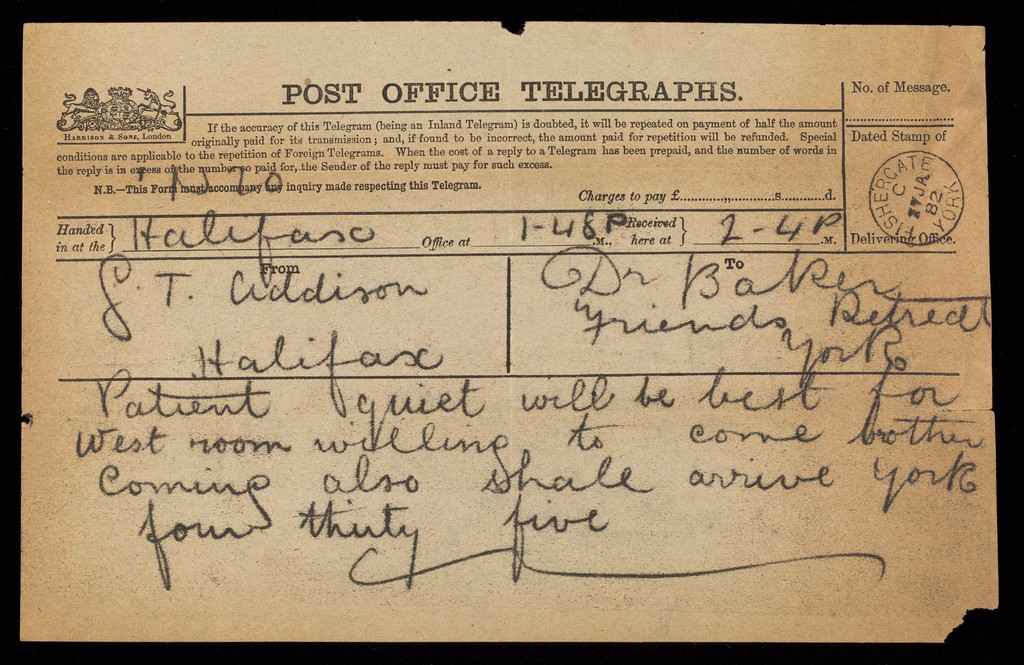 POST OFFICE TELEGRAPHS.
HARRISON & SONS, LONDON
If the accuracy of this Telegram (being an Inland Telegram) is doubted, it will be repeated on payment of half the amount
originally paid for its transmission; and, if found to be incorrect, the amount paid for repetition will be refunded. Special
conditions are applicable to the repetition of Foreign Telegrams. When the cost of a reply to a Telegram has been prepaid, and the number of words in
the reply is in excess of the number so paid for, the Sender of the reply must pay for such excess.
N.B.—This Form must accompany any inquiry made respecting this Telegram.
Charges to pay £ s. d.
No. of Message.
Dated Stamp of
FISHERGATE YORK
C
27 JA
82
Delivering Office.
Handed in at the } Halifax Office at 1-48 P.M., Received here at } 2-4 P.M.
From
To
T. Addison
Halifax
Dr Baker
Friends Retreat
York
Patient quiet will be best for
West room willing to come brother
Coming also shall arrive York
four thirty five